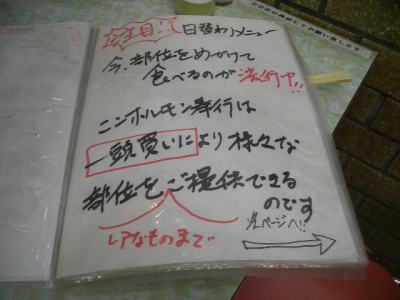 注目!! 日替わりメニュー
今、部位をめがけて
食べるのが流行中!!
ニンホルモン奉行は
一頭買いにより様々な
部位をご提供できる
のです
レアなものまで
次ページへ!!